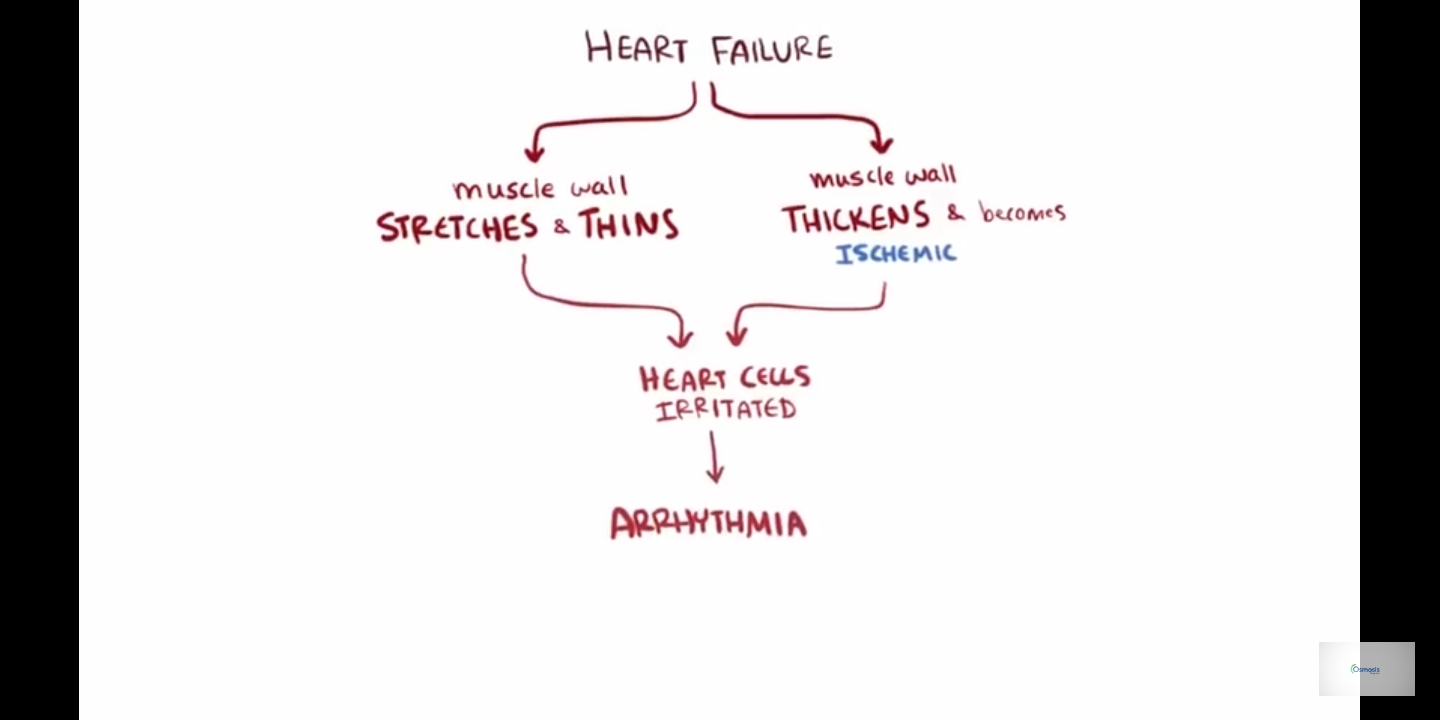 HEART FAILURE
muscle wall
STRETCHES & THINS
muscle wall
THICKENS & becomes
ISCHEMIC
HEART CELLS
IRRITATED
ARRHYTHMIA
Osmosis